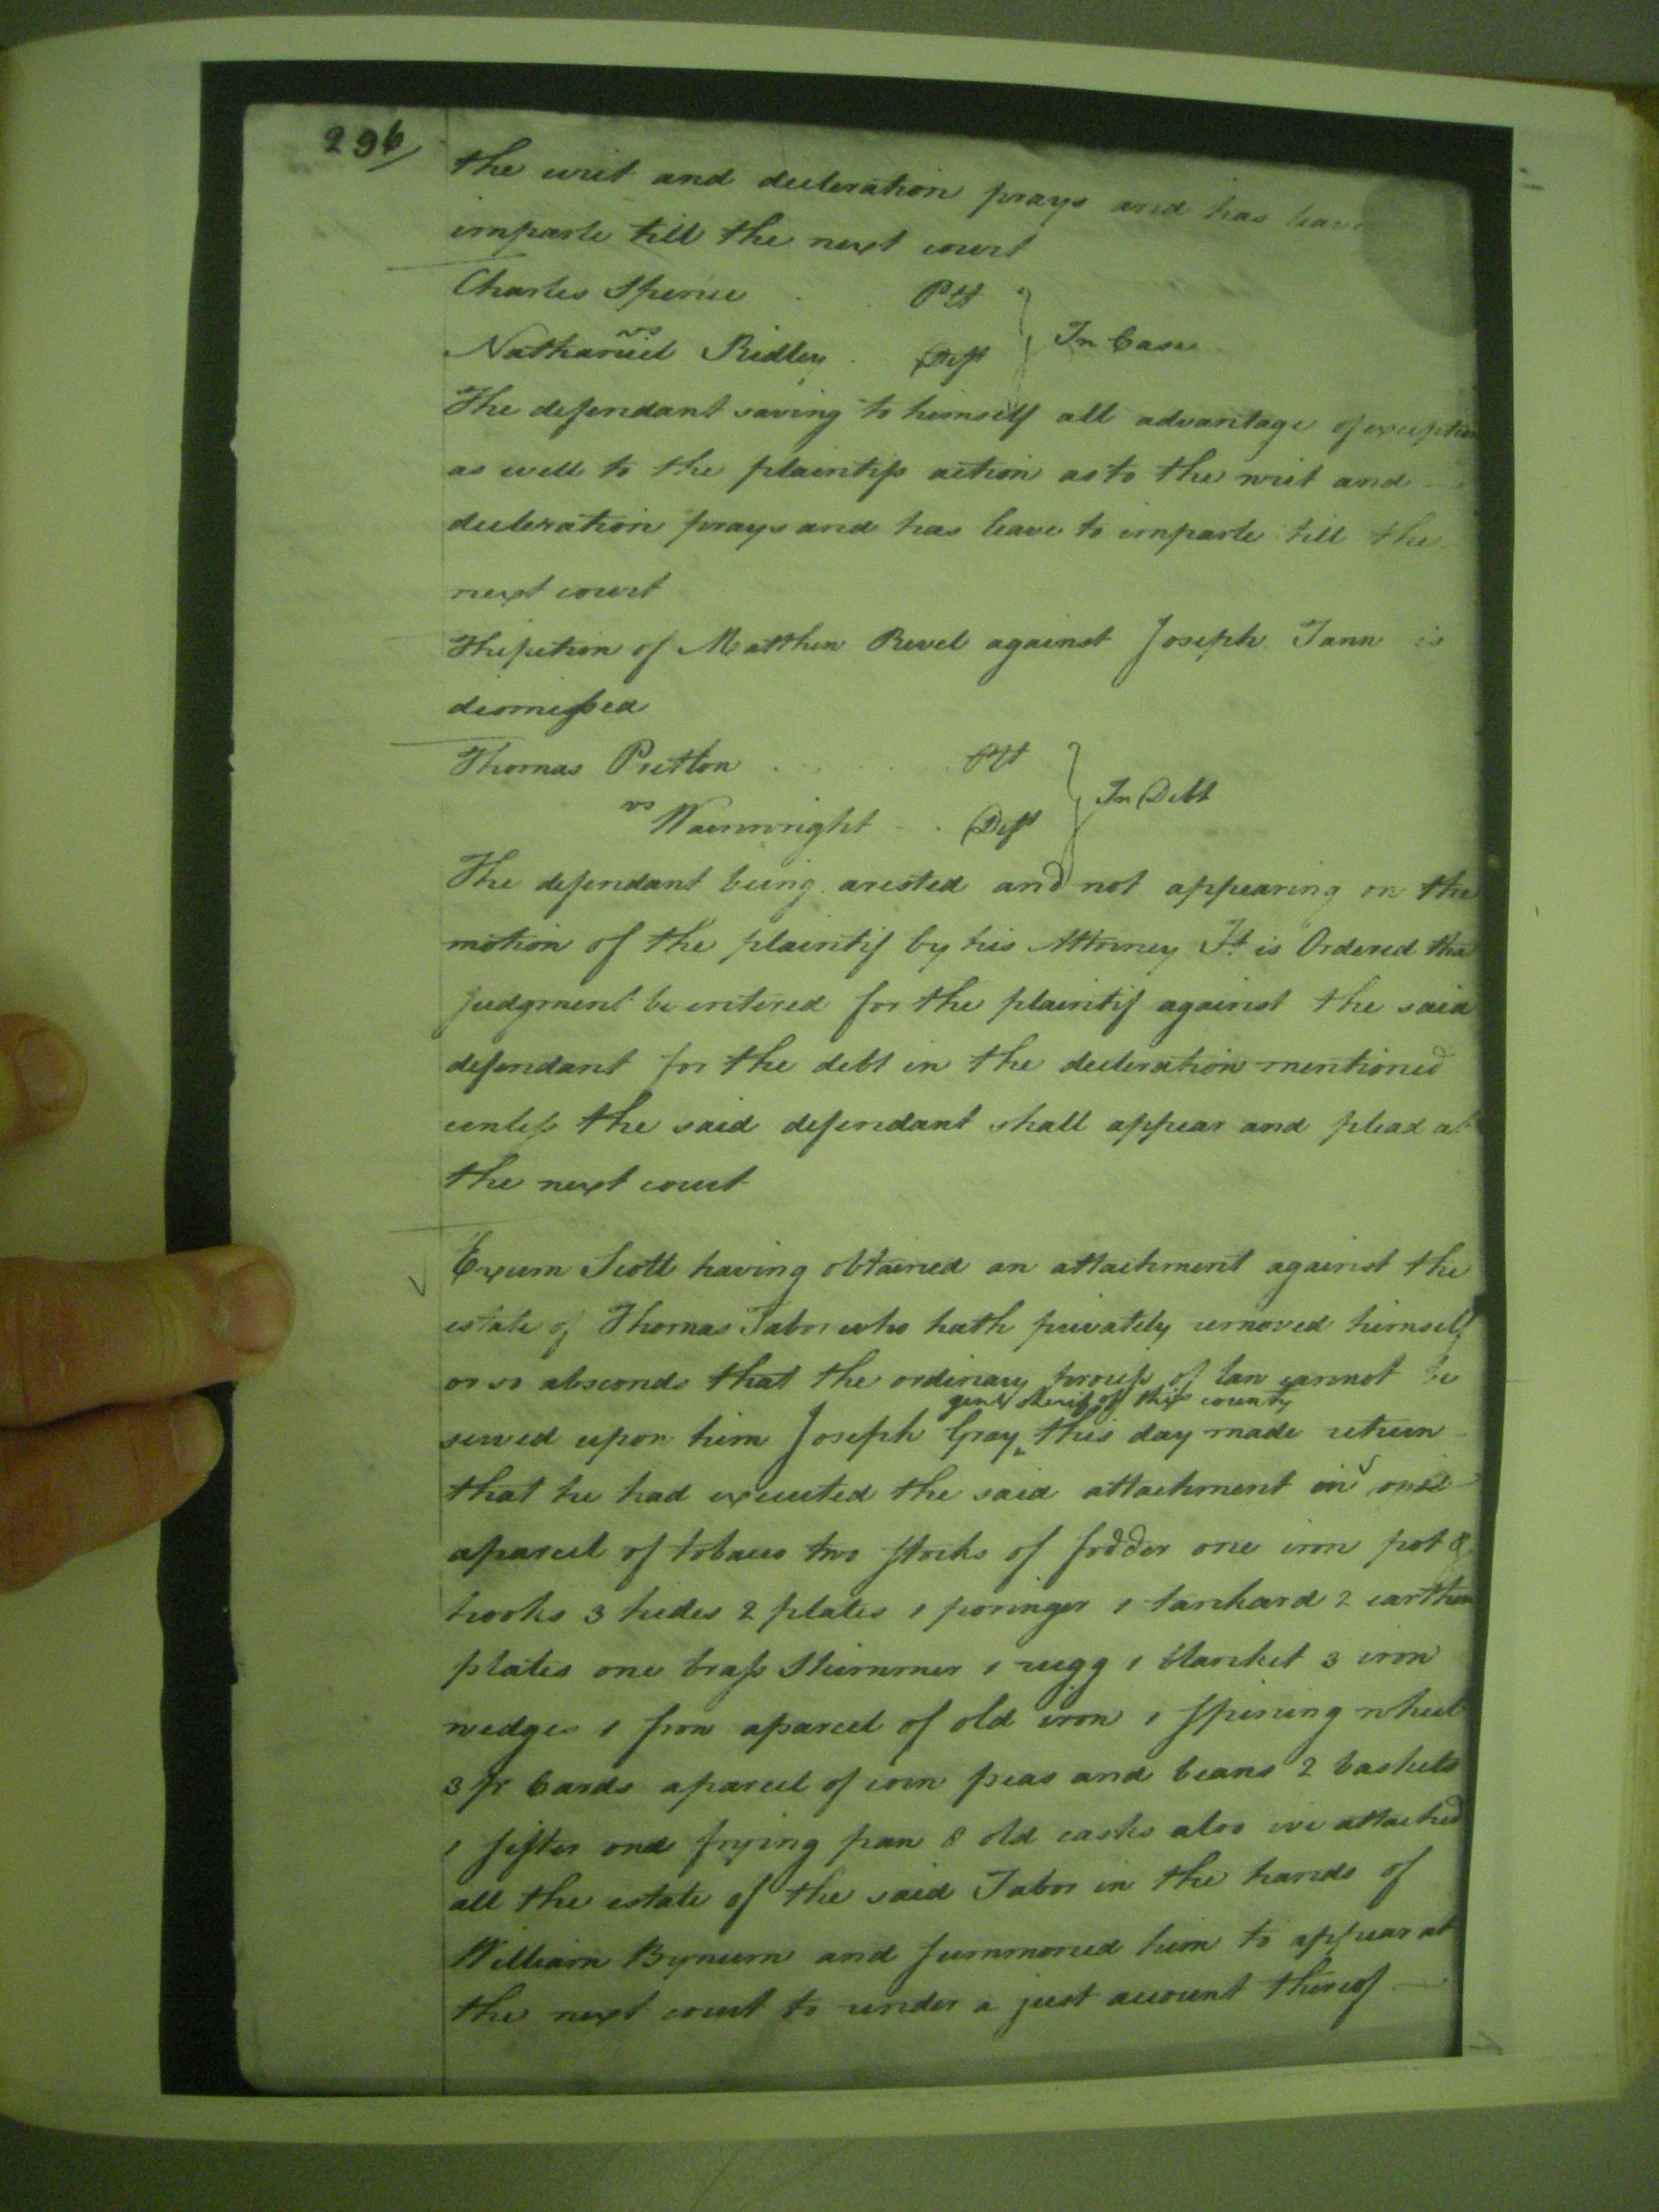 296
the writ and decleration prays and has leave
imparle till the next court
Charles Spence . . Plt } In Case
vs
Nathaniel Ridley . Deft
The defendant saving to himself all advantage of exception
as well to the plaintifs action as to the writ and
decleration prays and has leave to imparle till the
next court
The petion of Matthew Revel against Joseph Tann is
dismissed
Thomas Pretton . . . . Plt } In Debt
vs
Wainwright . . Deft
The defendant being arested and not appearing on the
motion of the plaintif by his Attorney It is Ordered that
judgment be entered for the plaintif against the said
defendant for the debt in the decleration mentioned
unless the said defendant shall appear and plead at
the next court
Exum Scott having obtained an attachment against the
estate of Thomas Tabor who hath privately removed himself
or so absconds that the ordinary process of law cannot be
gent sherif of this county
served upon him Joseph Gray ^ this day made return
that he had executed the said attachment in
aparcel of tobacco two stocks of fodder one iron pot &
hooks 3 hides 2 plates 1 poringer 1 tankard 2 earthen
plates one brass skimmer 1 rugg 1 blanket 3 iron
wedges 1 frow aparcel of old iron 1 spining wheel
3 pr Cards aparcel of corn peas and beans 2 baskets
1 sifter one frying pan 8 old casks also we attached
all the estate of the said Tabor in the hands of
William Bynum and summoned him to appear at
the next court to render a just account thereof